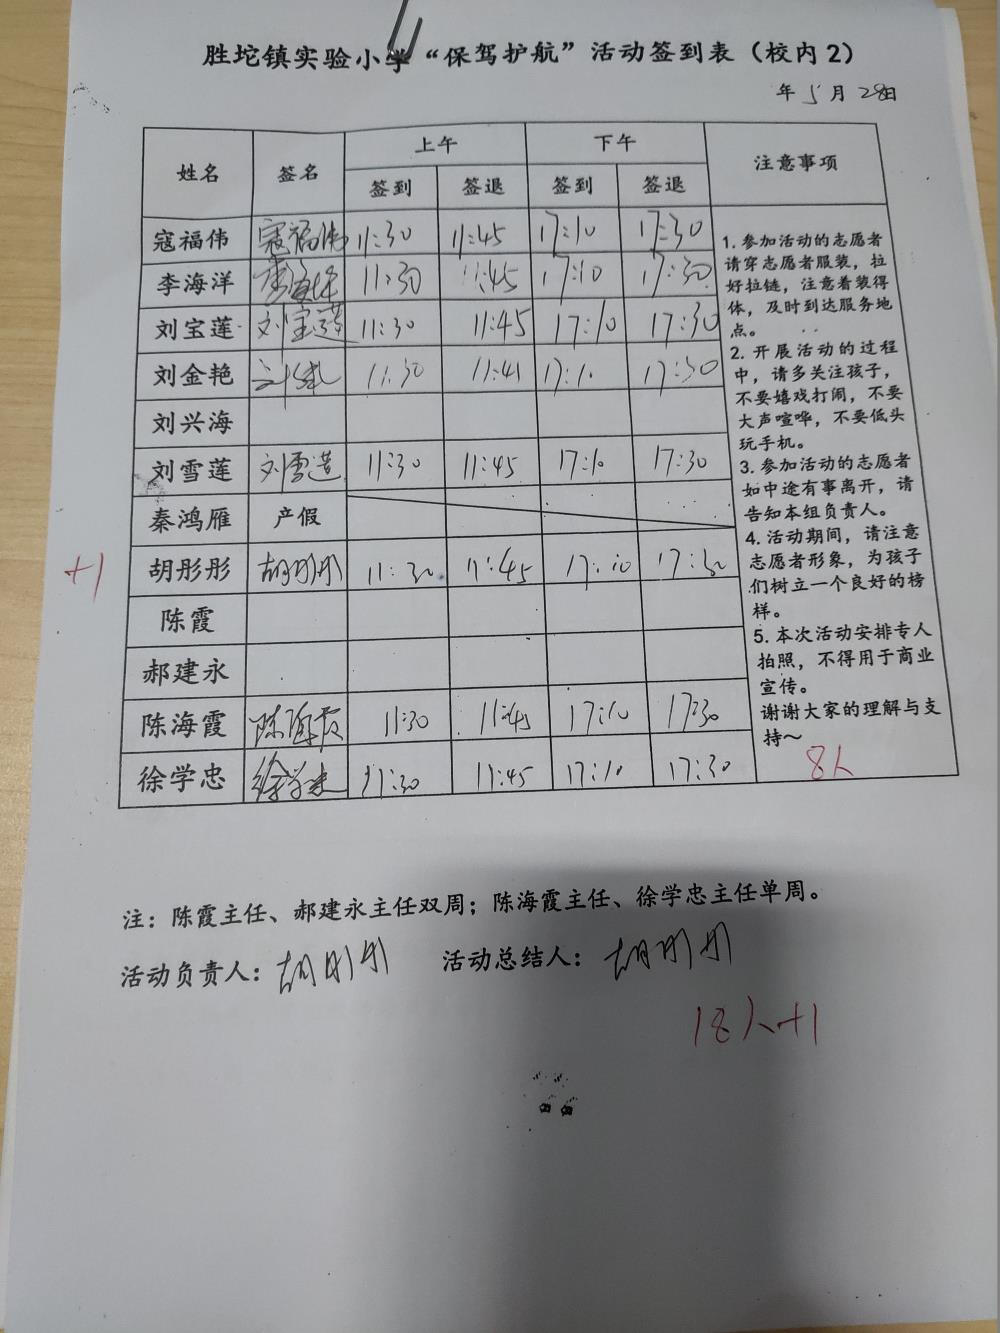 胜坨镇实验小学“保驾护航”活动签到表（校内2）
年5月28日
姓名 签名 上午 下午 注意事项
签到 签退 签到 签退
寇福伟 寇福伟 11:30 11:45 17:10 17:30
李海洋 李海洋 11:30 11:45 17:10 17:30
刘宝莲 刘宝莲 11:30 11:45 17:10 17:30
刘金艳 11:30 11:41 17:10 17:30
刘兴海
刘雪莲 刘雪莲 11:30 11:45 17:10 17:30
秦鸿雁 产假
+1 胡彤彤 胡彤彤 11:30 11:45 17:10 17:30
陈霞
郝建永
陈海霞 陈海霞 11:30 11:45 17:10 17:30
徐学忠 徐学忠 11:30 11:45 17:10 17:30
1.参加活动的志愿者
请穿志愿者服装，拉
好拉链，注意着装得
体，及时到达服务地
点。
2.开展活动的过程
中，请多关注孩子，
不要嬉戏打闹，不要
大声喧哗，不要低头
玩手机。
3.参加活动的志愿者
如中途有事离开，请
告知本组负责人。
4.活动期间，请注意
志愿者形象，为孩子
们树立一个良好的榜
样。
5.本次活动安排专人
拍照，不得用于商业
宣传。
谢谢大家的理解与支
持～
8人
注：陈霞主任、郝建永主任双周；陈海霞主任、徐学忠主任单周。
活动负责人：胡彤彤 活动总结人：胡彤彤
18人+1